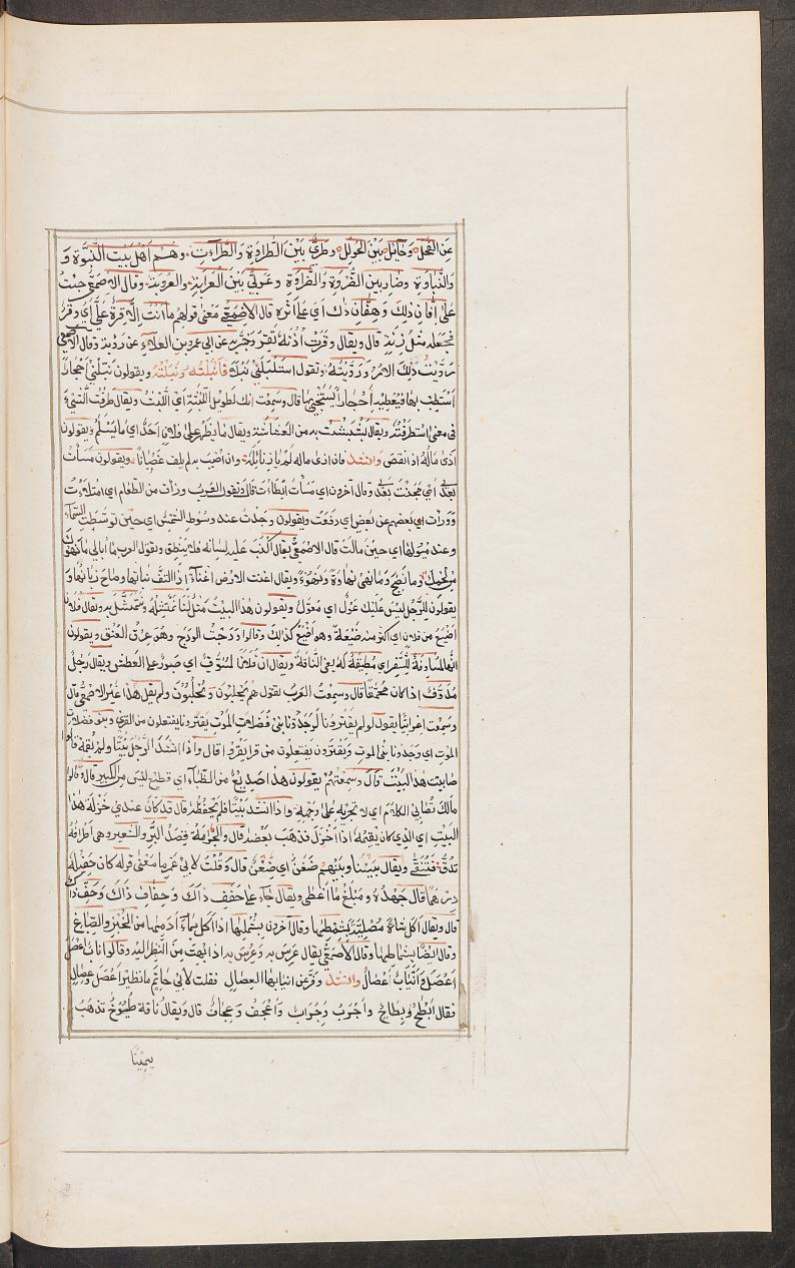 عَن الفَحل وَحَائل بَيْنَ الحُولِلِ وطَرِيٌّ بَيْنَ الطَّرَاوَةِ وَالطَّرَاءَةِ وهُم اَهْلُ بَيْتِ النُّبُوَّة وَ
وَالنَّبَاوَةِ وضَارٍ بين الضَّرْوَةِ وَالضَّرَاوَةِ وعَرَبِيٌّ بَيْنَ العَرَابَةِ والعروبَة وقال الاصمعي جِئتُ
عَلَى إفَّانِ ذلِكَ وَهَفَّانِ ذلك اي على اثره قال الاصمعي مَعنَى قولهم مَا اَنْتَ اِلَّا قِرَةٌ عَلَيَّ اي وِقْرٌ
فجعله مثل زِنَةٍ قال ويقال وقَرَتْ اُذُنُهُ تَقِرُ وَخَبَّرَ بِه عن ابى عمرو بن العلاء عن رؤبة وقال الاصمعى
رَوَّيْتُ ذلِكَ الامرَ وَرَوَّيْتُهُ وتقول استَنْبَلَنِي نَبْلًا فَاَنْبَلْتُه وَنَبَلْتُهُ ويقولون نَبِّلْنِي اَحْجارًا
اَسْتَطِبْ بها فَيعطِيه اَحْجارا يَسْتَنْجِي بها قال وسَمِعت انك لطويل اللُّبْثَة اي اللَّبْثُ ويقال طَرَفْتُ الشيءَ
فى معنى استَطْرَفْتُه ويقال تَبَشْبَشْتُ به من البَشَاشَة ويقال مَا يَظهرُ على فلانٍ اَحَدٌ اي مَا يَسْلَمُ ويقولون
اَذَى مالُهُ اذا نقصَ وانشد فان اذى ماله لم يازِ نائِلَهُ وان اُصِيبَ به لم يلف غَضْبانا ويقولون مَسَأتُ
بَعْدِى اَي مَجُنْتَ بَعْدِى وقال آخرون اي مَسَأتَ اَبْطَاْتَ قال وتقول العَرَب وَزَأت من الطَّعَام اي امتَلَأْتُ
وَوَرَأت اي بَعضهم عن بَعضٍ اي دَفَعْت ويقولون وَجَدْتُ عند وسُوطِ الشَّمْسِ اي حين توسَّطتِ السَّمَآءَ
وعند مُيُولها اي حين مالَتْ قال الاصمعيُّ يقال اَكْنَبَ عَلَيه لِسَانه فَلا يَنطِق ويقول العرب ما اُبالِي مَا نَهُؤَ
مِن لَحْمِكَ وما نَضِجَ وَمَا نَهِئَ نهَاوَةً ونُهُوءَةً ويقال اغنت الارض اغنَآءً اذا التفَّ نباتها وصَاحَ ذُبابُهَا وَ
يقولون لِلرَّجُل ليسَ عليك عَوَل اي مُعَوَّلٌ ويقولون هٰذا البيت مَثَلُ لنا نَمتَثِلُهُ ونَتَمَثَّل به ويقال فلان
اَضْيَعُ من فلان اي اكثر منه ضَيْعَةً وهو اَضْيَعُ كذلِكَ وقالوا وَدَجْتُ الوَدَجَ وهُوَ عِرْقُ العُنقِ ويقولون
انّها لمُبَاذِنةٌ لِلسَّفَر اي مُطِيقَةٌ لَهُ يعنى النَّاقة ويقال ان فُلانًا لَمُسَوِّفٌ اي صَبُور على العطش ويقال رجُلٌ
مُدَفَّفٌ اذا كان مُخَفَّفًا قال وسمعتُ العَرَب تقول هم يَحْلِبُونَ ويُحْلِبُونَ ولم يقل هٰذا غَيْر الاصمعي قال
وسَمِعت اعرابيًّا يقول لولم يَقْتَرونا لَوَجَدُونا بَنِى فَضَلاتِ المَوتِ يَقْتَرونا يَفتَعِلُون من القَرْيِ وبنى فضلات
الموت اي وَجَدُونا بَني الموتِ وَيَقْتَرُون يَفتعِلُون مِن قرا يَقْرُو قال واذا انشَدَ الرَّجُل بَيتًا ولم يُقِمْهُ قالوا
صَابيت هٰذا البَيْتَ قال وسمعتُهُم يقولون هٰذا صَدِيعٌ من الظِّبَآء اي قطيع ليسَ مِن الكبير قال وقالوا
مالَكَ تُصَابِى الكلامَ اي لا تجريه عَلَى وَجْهِهِ واذا انشد بَيتًا فلم يَحْفَظْهُ قال قد كَانَ عندي خَزْلَهُ هٰذا
البيتِ اي الذي كان يقيمُهُ اذا انخزَلَ فذهَبَ بَعْضُه قال والجُزَمَةُ فِصَلُ البُرِّ والشَّعير وهي اَطْرافهُ
تُدَقُّ فَتُنَقَّى ويقال بيننا وبينهم ضَغْنٌ اي ضِغْنٌ قال وقُلت لابى عَمرو ما مَعْنى قولِه كان حَفِيلُه
دِرْهَمًا قال جُهْدُهُ ومَبْلَغ مَا اَعْطى ويقال جَآء على حَفَفِ ذاكَ وحِفَافِ ذَاكَ وَحَفِّ ذاكَ
قال ويقال اَكَل شَاةً مَصْلِيَّةً بِشَمَطِهَا وقال آخرون بِشُمْطِهَا اذا اكل بمآءٍ اَدَمَها من الخُبْز والصِّبَاغِ
وقال ايضًا بِشِمَاطِهَا وقال الاصمعيُّ يقال عَرِسَ به وعُرِسَ بِه اذا بُهِتَ مِنَ النظر اليه وقالوا نابٌ اَعْصَلُ
اَعْصَلَ وَاَنْيَابٌ اَعْصالٌ وانشد وفُرَّ عن انيابها العِصالِ فقلت لابي حَاتِم ما نظيرُ اَعْصَلَ وعِصالٍ
فقال اَبْطَحُ وبِطَاحٌ واَجْرَبُ وَجِرَابٌ وَاَعْجَفُ وَعِجَافٌ قال وَيقالُ نَاقة طَيُوخٌ تذهَبُ
يمِينًا